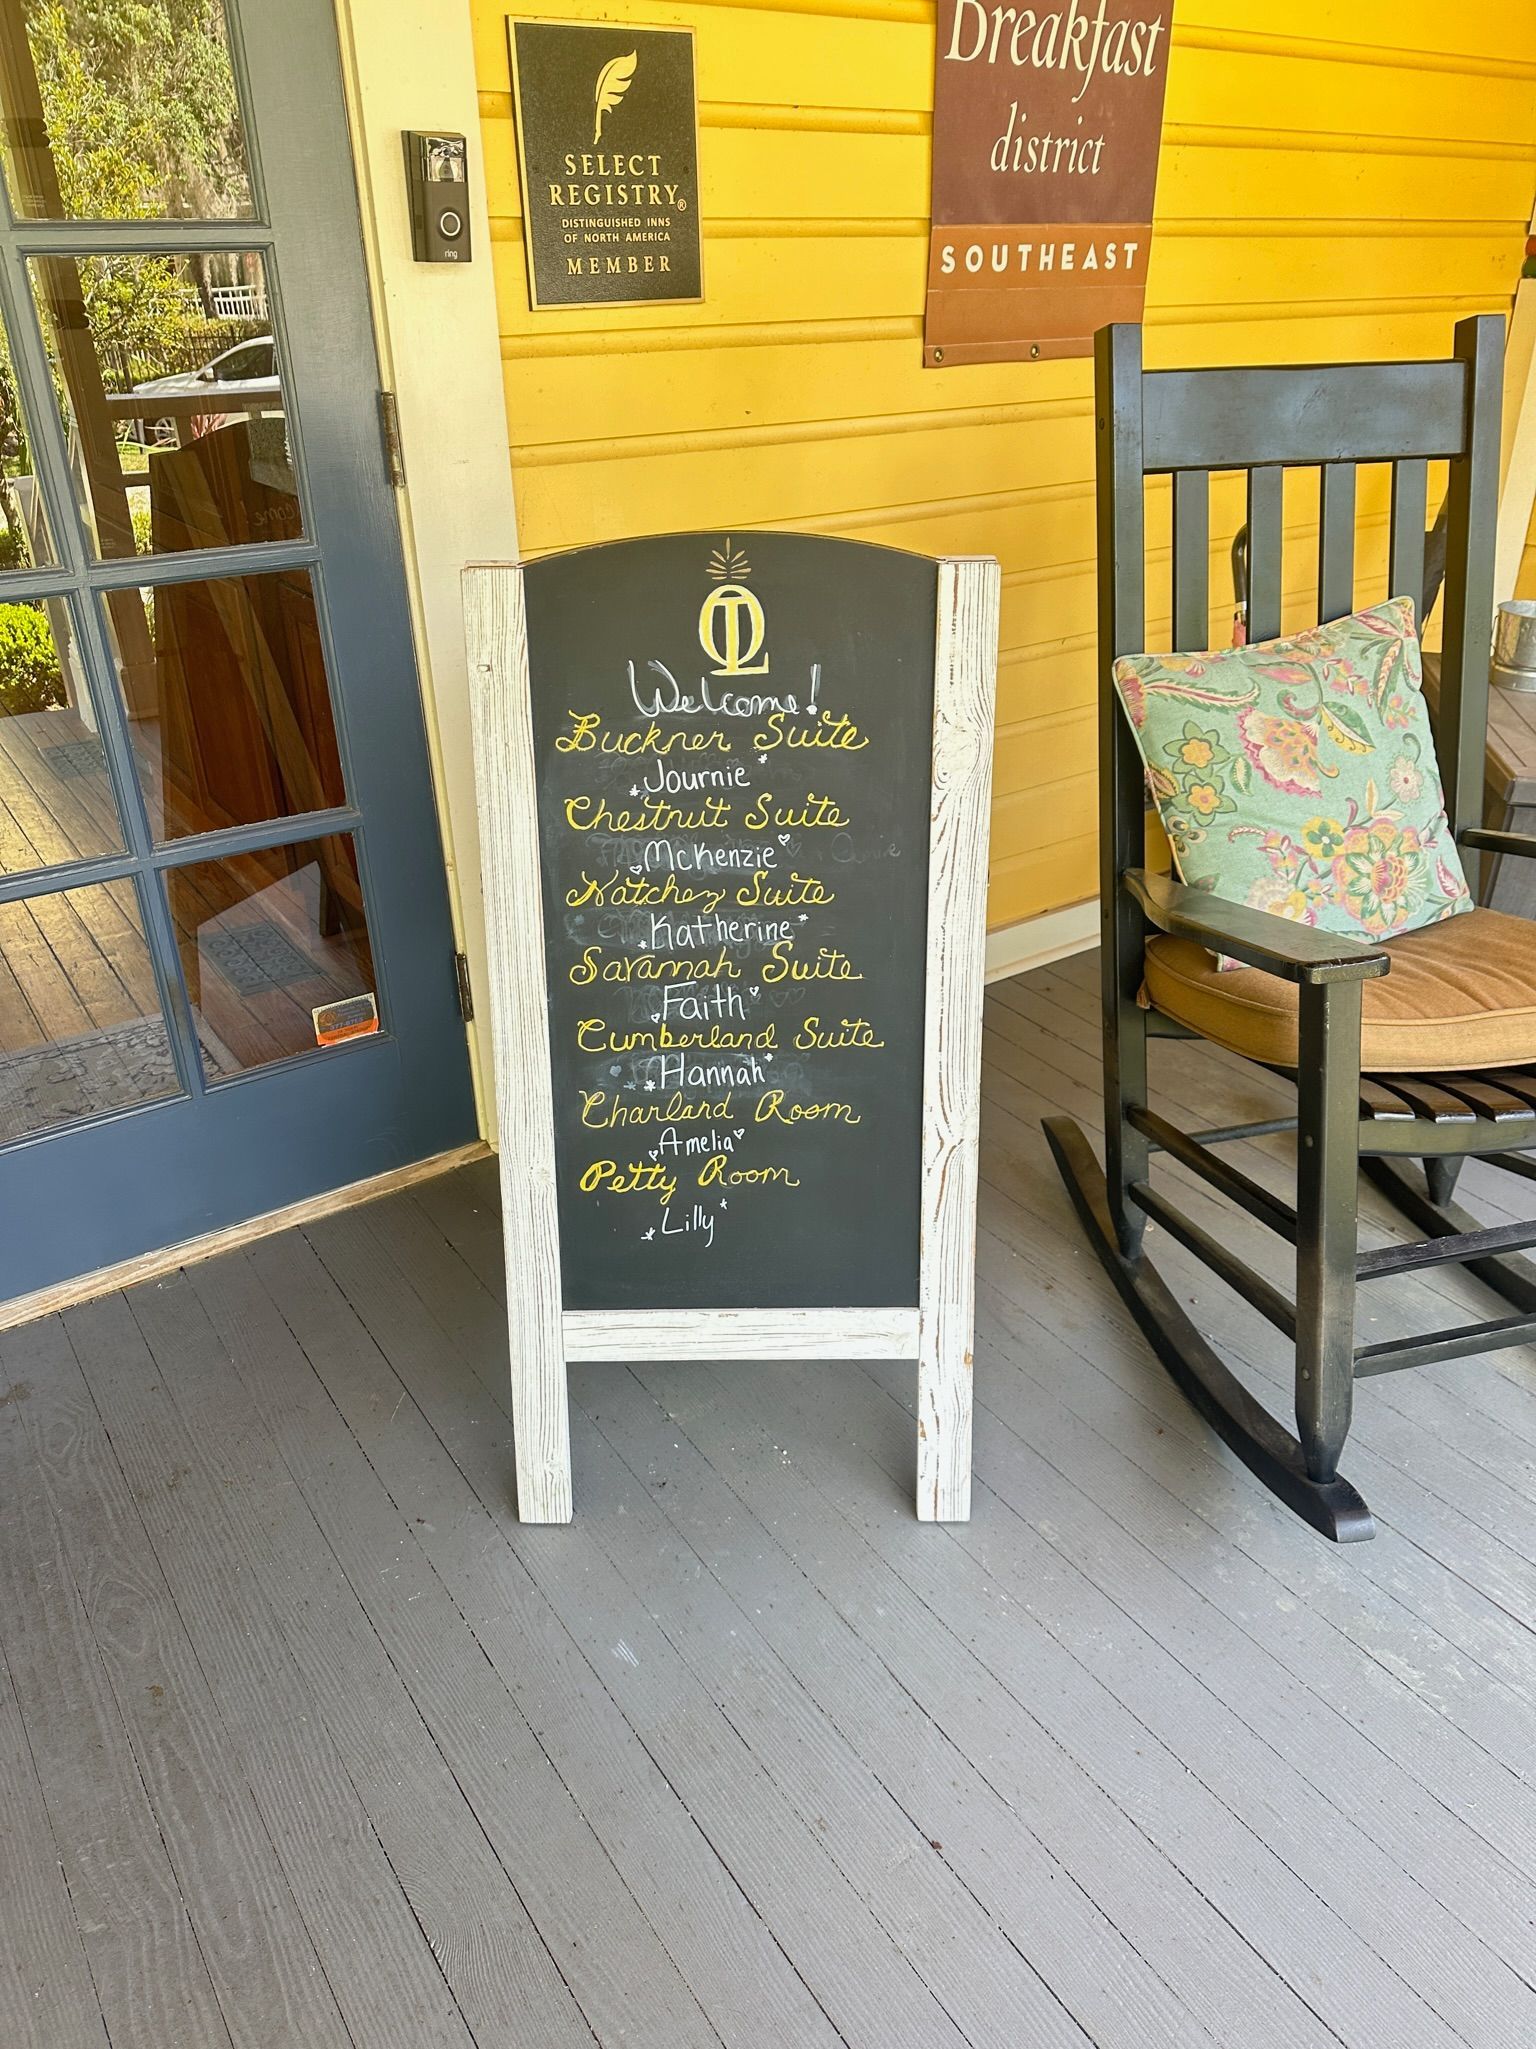 Breakfast
district
SOUTHEAST
SELECT
REGISTRY®
DISTINGUISHED INNS
OF NORTH AMERICA
MEMBER
ring
Welcome!
Buckner Suite
Journie
Chestnut Suite
McKenzie
Natchez Suite
Katherine
Savannah Suite
Faith
Cumberland Suite
Hannah
Charland Room
Amelia
Petty Room
Lilly